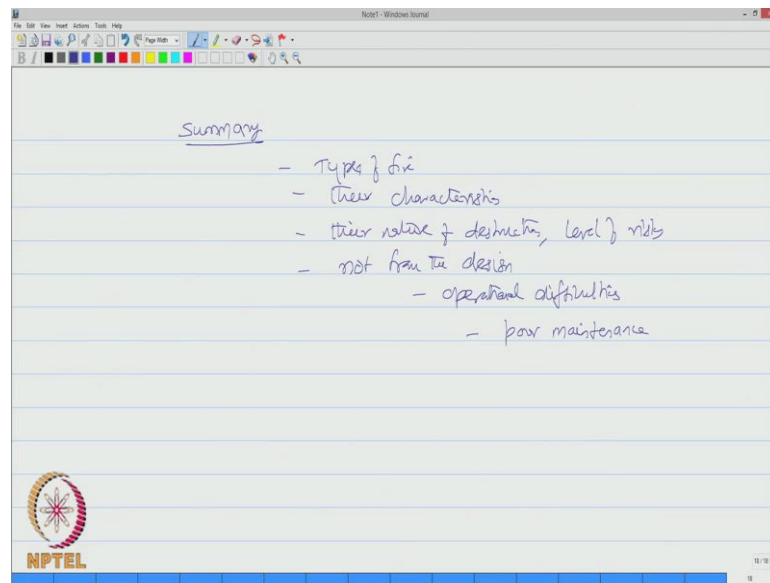 Note1 - Windows Journal
File Edit View Insert Actions Tools Help
Page Width
B I
Summary
- Types of fire
- their characteristics
- their nature of destruction, level of risks
- not from the design
- operational difficulties
- poor maintenance
NPTEL
18 / 18
18